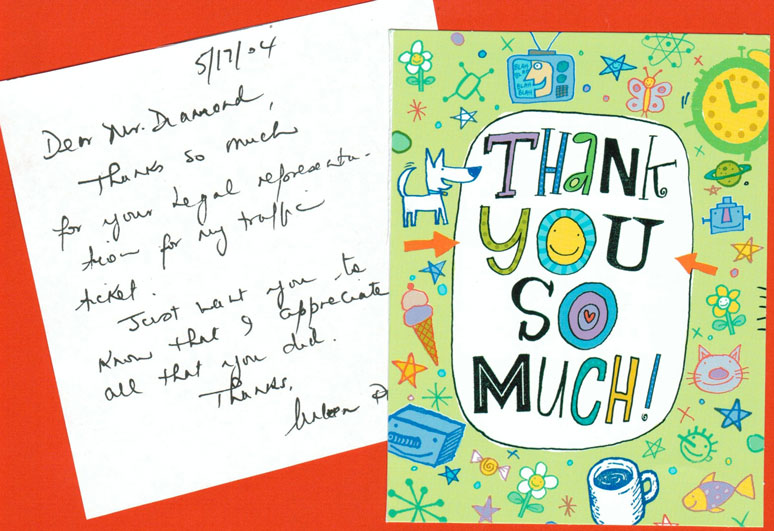 5/17/04
Dear Mr. Diamond,
Thanks so much
for your legal representa-
tion for my traffic
ticket.
Just want you to
know that I appreciate
all that you did.
Thanks,
THANK
YOU
SO
MUCH!
BLAH
BLAH
BLAH